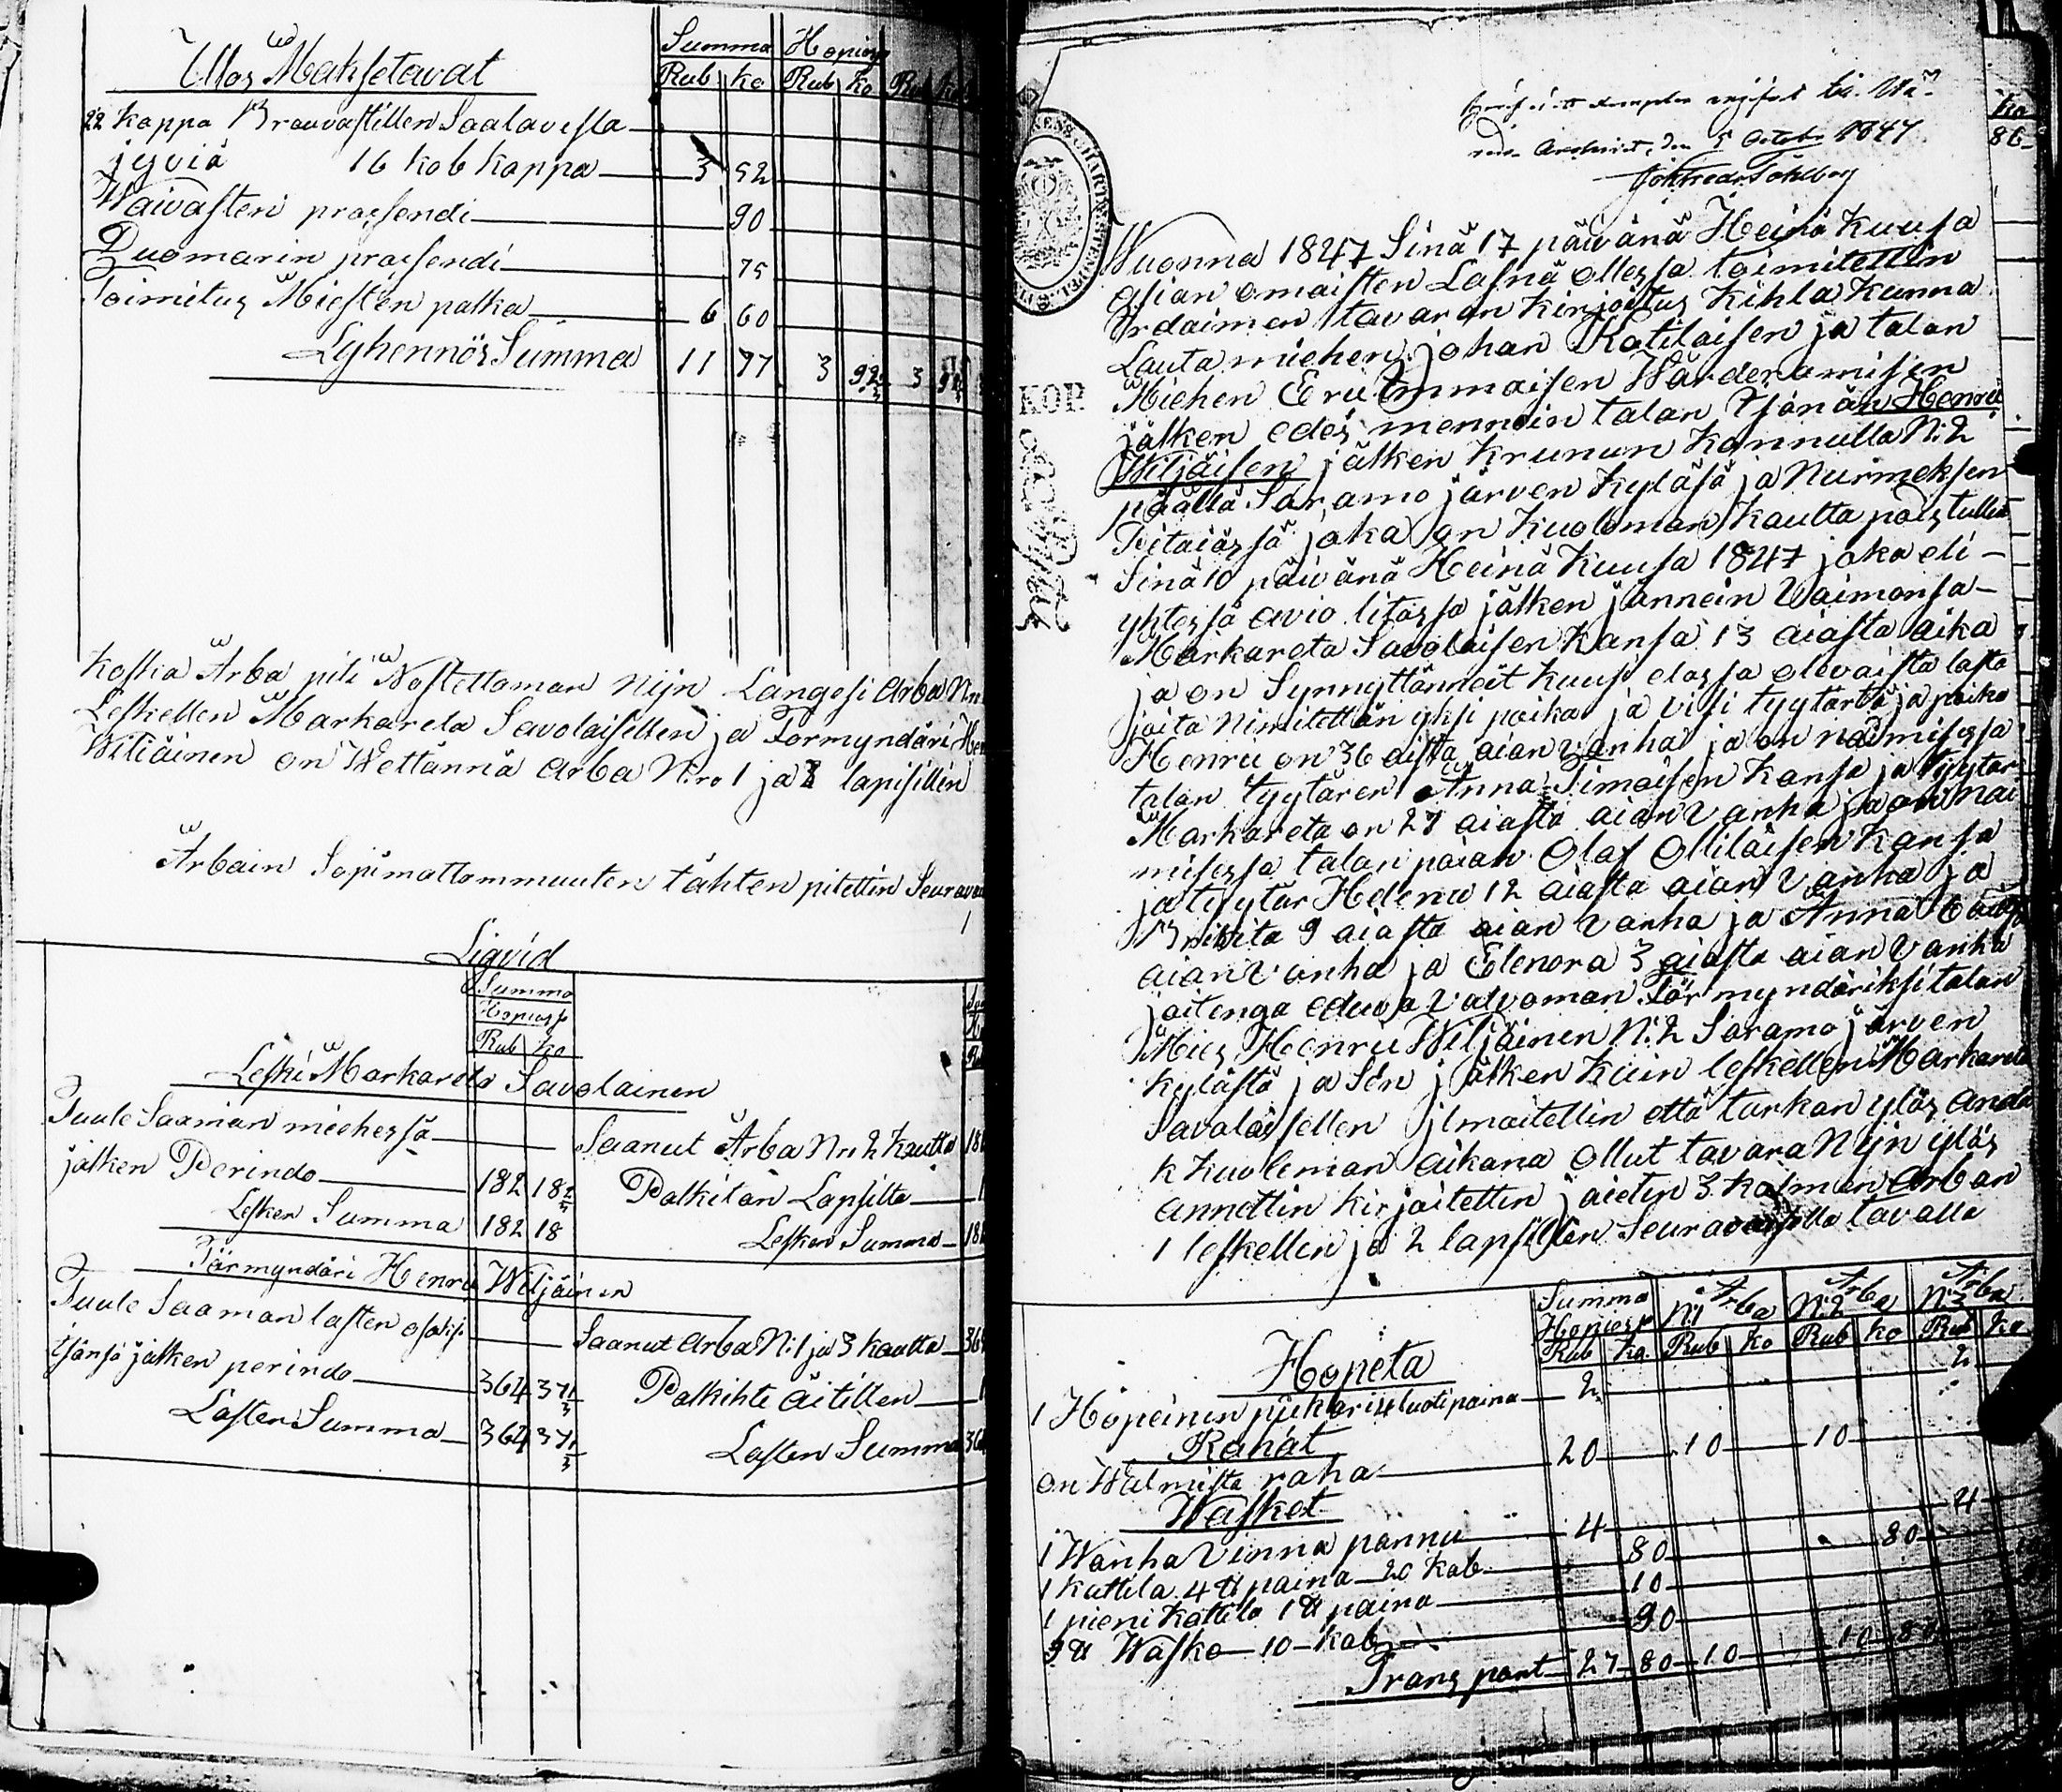 Ulos Maksetavat
Summa Hopiass
Rub ko Rub ko Rub ko
22 Kappa Brovastillen Saalavista
jyviä 16 kob kappa 3 52
Waivasten præsendi 90
Duomarin præsendi 75
Toimitus Miesten palka 6 60
Lyhennös Summa 11 77 3 92 3
Koska Arba piti Nostettoman nijn Langesi Arba
Leskellen Markareta Savolaisellen ja Formyndäri
Wiliäinen on Wettännä Arba N:ro 1 ja 3 lapisillin
Arbain Sopimattommuuten tähten pitettin
Liqvid
Summa
Hopiass
Rub ko
Leski Markareta Savolainen
Tuule Saaman miehessä Saanut Arba Nr: 2 kautta
jälken Perindo 182 18 2/3 Palkitan Lapsilta
Lesken Summa 182 18 Lesken Summa
Färmyndäri Henru Wiljäinen
Tuule Saaman lasten osaksi Saanut Arba N:1 ja 3 kautta
Isänsä jälken perindo 364 37 1/3 Palkihte äitillen
Lasten Summa 364 37 1/3 Lasten Summa
ko
86
den 5 October 1847
KOP
Wuonna 1847 Sinä 17 päivänä Heinä Kuusa
asian omaisten Läsnä ollessa toimitettin
Irdaimen tavaran kirjoitus Kihla Kunna
Lauta miehen johan Kotilaisen ja talan
Miehen Eru Immaisen Wärderamisen
jälken edes mennein talan Isänän Henru
Wiljäisen jälken Krunun Kannulla N:2
päällä Saramo järven Kyläsä ja Nurmeksen
Pitaiässä joka on Kuoloman kautta pois tullut
Sinä 10 päivänä Heinä Kuusa 1847 joka eli
yhtessä avio litossa jälken jännein Vaimonsa
Markareta Savolaisen Kansa 13 aiasta aika
ja on Synnyttänneet kuusi elossa olevaista lasta
joita nimitettän yksi poika ja visi tyytärtä ja poika
Henru on 36 aista aian vanha ja on naimisessa
talan tyytären Anna Timoisen Kansa ja tyytär
Markareta on 27 aiasta aian vanha ja on nai
misessa talan poian Olaf Ollilaisen Kansa
ja tyytär Helena 12 aiasta aian vanha ja
Brikita 9 aiasta aian vanha ja Anna 6
aian vanha ja Elenora 3 aiasta aian vanha
joitenga edusa valvoman Förmyndäriksi talan
Mies Henru Wiljäinen N:2 Saramo järven
kylästä ja Sen jälken kuin leskellen Markareta
Savolaisellen jlmoitellin että tarkan ylös anda
k kuoleman aikana ollut tavara Nijn ylös
annettin kirjoitettin jaietin 3 kolmen Arban
1 leskellin ja 2 lapsillen Seuravaisella tavalla
Summa Arba Arba Arba
Hopiass N:1 N:2 N:3
Rub ko. Rub ko Rub ko Rub ko
Hopeta
1 Hopeinen piikari 4 luoti paina 2 2
Rahat
on Walmista raha 20 10 10
Wasket
1 Wanha Vinna pannu 4 4
1 kattila 4 ℔ paina 20 kob 80 80
1 pieni kattila 1 ℔ paina 10
9 ℔ Wasko 10 kob 90
Transport 27 80 10 10 80